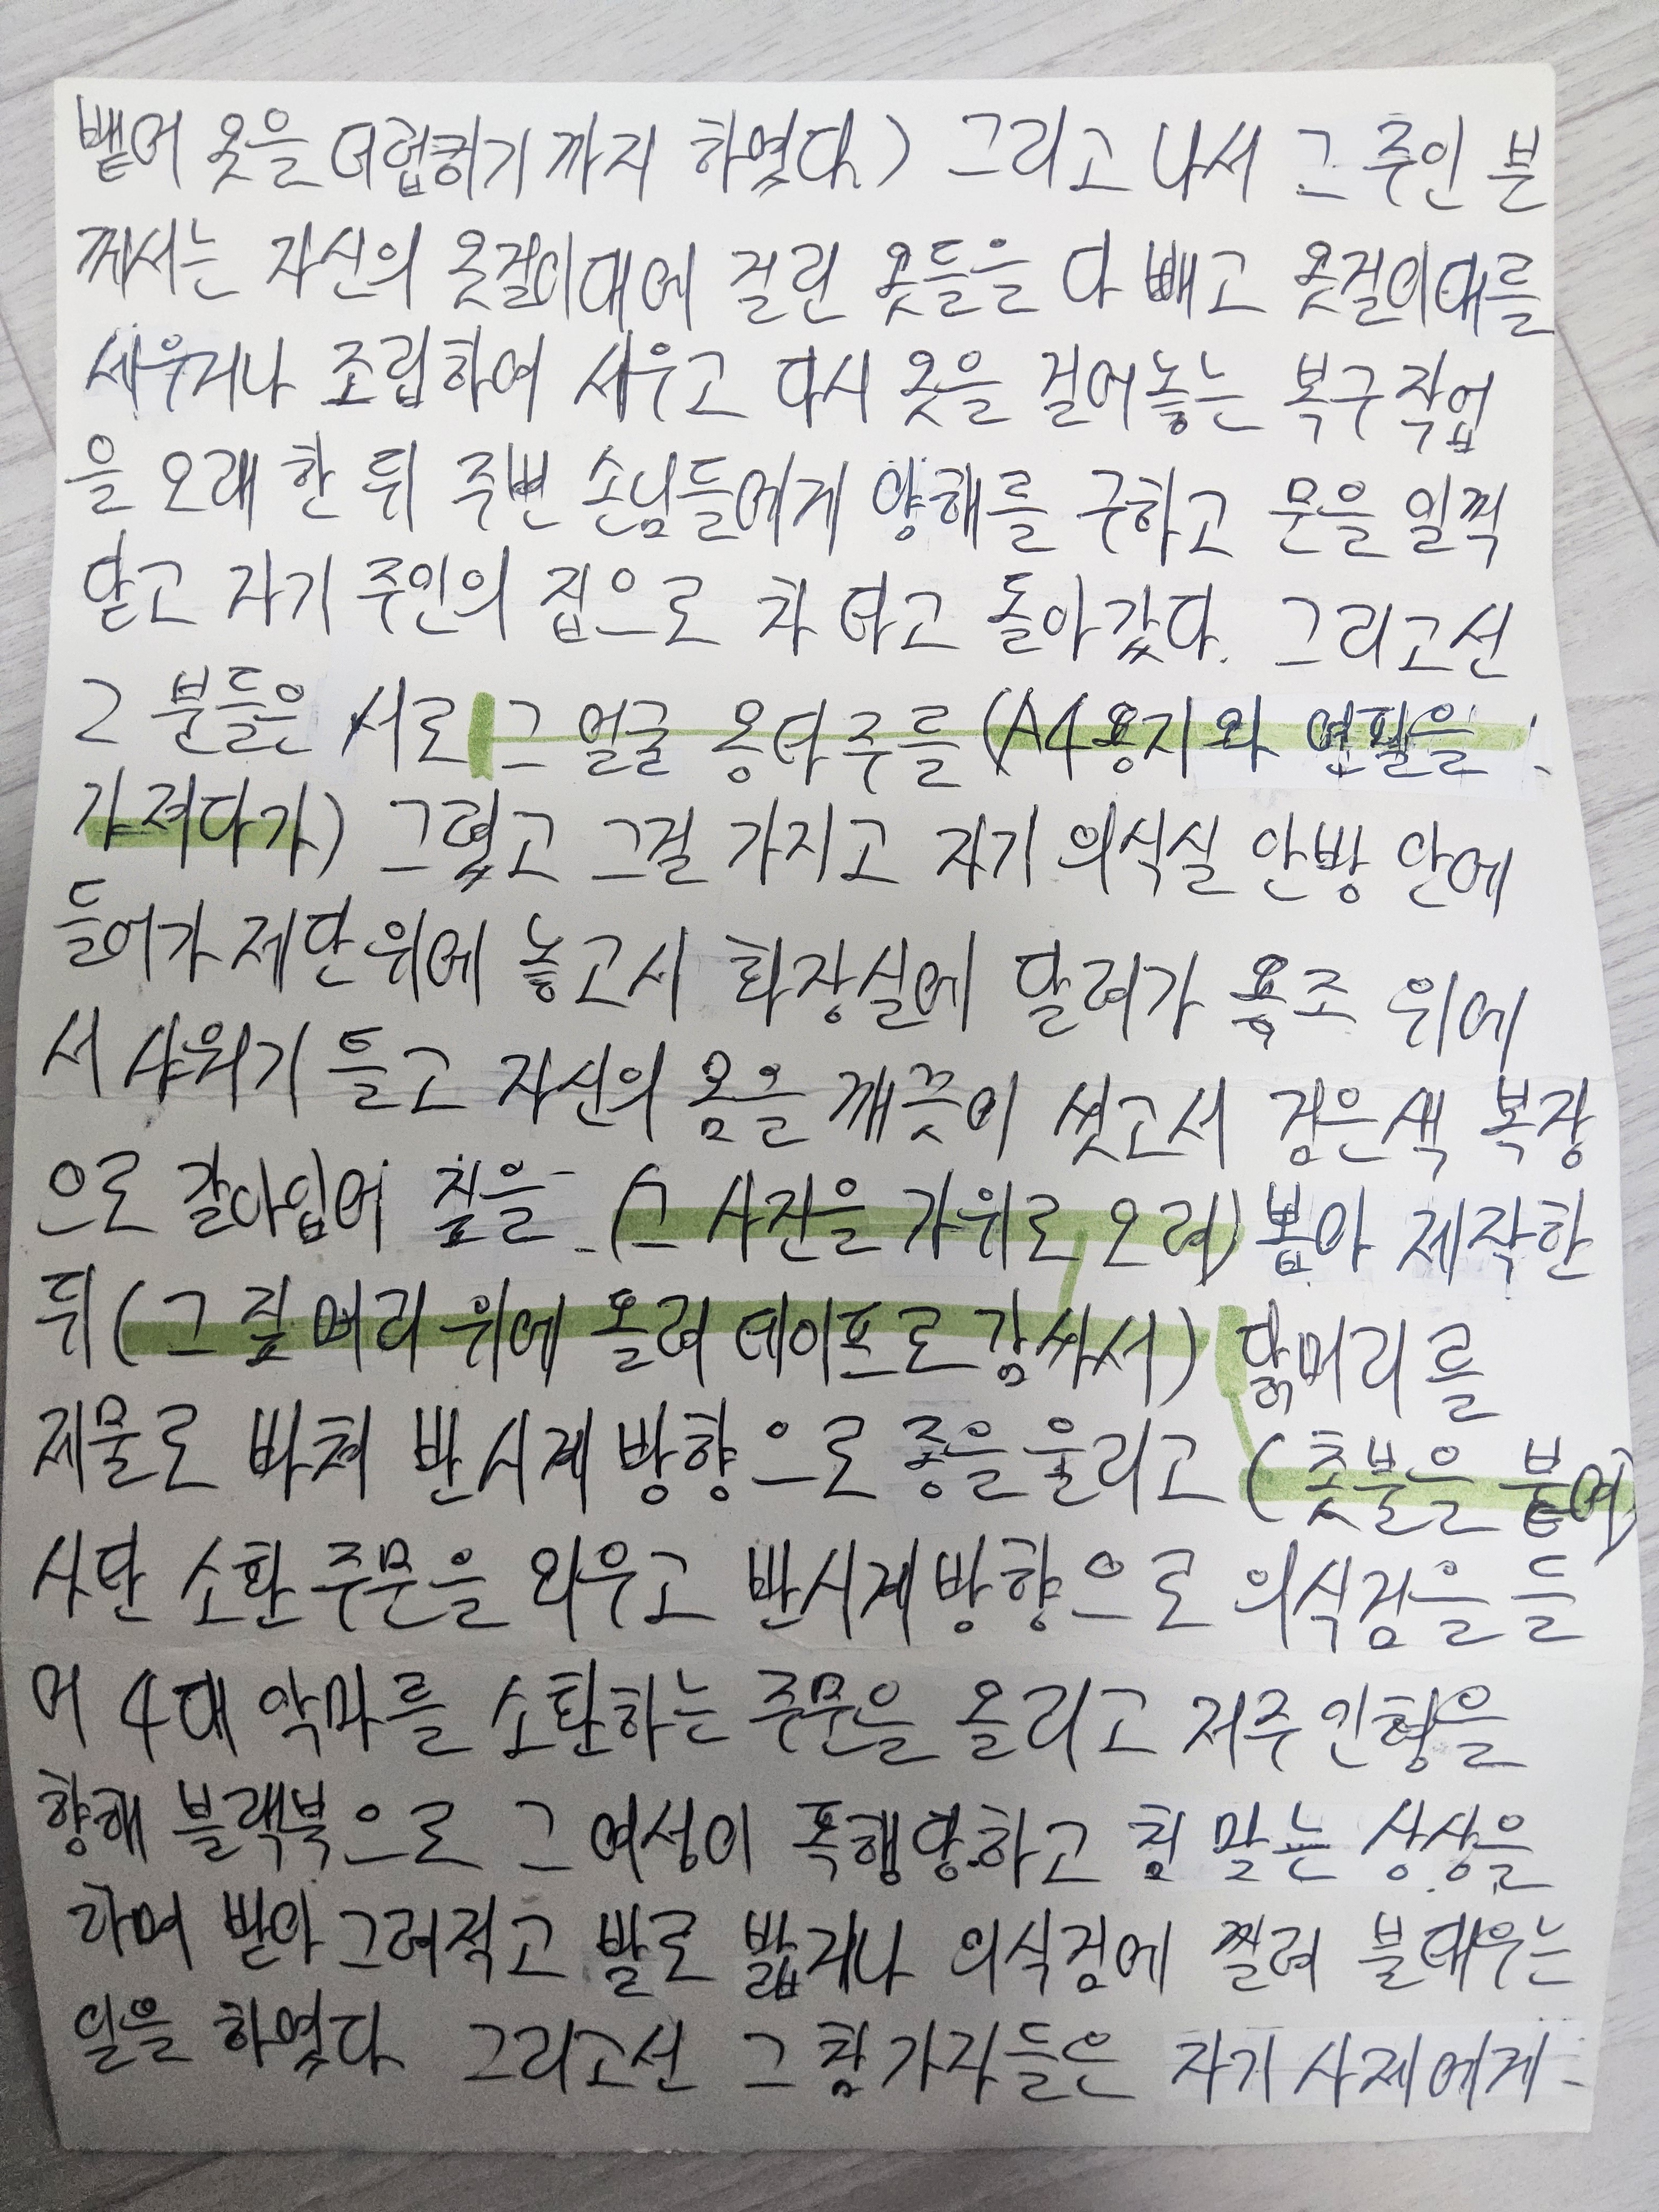 뱉어 옷을 더럽히기까지 하였다.) 그리고 나서 그 주인 분
께서는 자신의 옷걸이대에 걸린 옷들을 다 빼고 옷걸이대를
세우거나 조립하여 세우고 다시 옷을 걸어놓는 복구작업
을 오래 한 뒤 주변 손님들에게 양해를 구하고 문을 일찍
닫고 자기 주인의 집으로 차 타고 돌아갔다. 그리고선
2 분들은 서로 그 얼굴 몽타주를 (A4용지와 연필을
가져다가) 그렸고 그걸 가지고 자기 의식실 안방 안에
들어가 제단위에 놓고서 화장실에 달려가 욕조 위에
서 샤워기 틀고 자신의 몸을 깨끗이 씻고서 검은색 복장
으로 갈아입어 짚을 (그 사진을 가위로 오려) 뽑아 제작한
뒤 (그 짚 머리 위에 올려 테이프로 감싸서) 닭머리를
제물로 바쳐 반시계 방향으로 종을 울리고 (촛불을 붙여)
사탄 소환 주문을 외우고 반시계 방향으로 의식검을 들
어 4대 악마를 소환하는 주문을 올리고 저주 인형을
향해 블랙북으로 그 여성이 폭행당하고 침 맞는 상상을
하며 받아 그려적고 발로 밟거나 의식검에 찔려 불태우는
일을 하였다. 그리고선 그 참가자들은 자기 사제에게